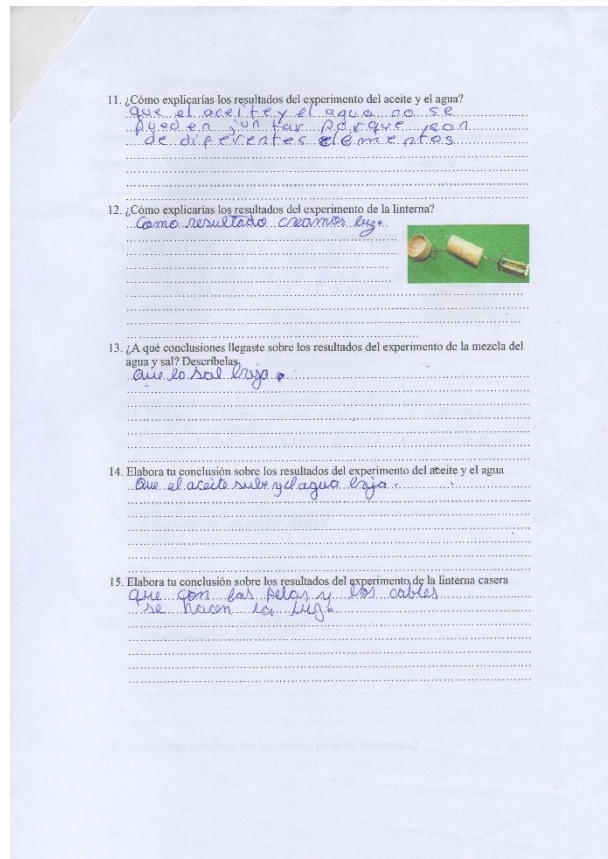 11. ¿Cómo explicarías los resultados del experimento del aceite y el agua?
que el aceite y el agua no se
pueden juntar porque son
de diferentes elementos
12. ¿Cómo explicarías los resultados del experimento de la linterna?
Como resultado creamos luz.
13. ¿A qué conclusiones llegaste sobre los resultados del experimento de la mezcla del
agua y sal? Descríbelas
Que la sal baja.
14. Elabora tu conclusión sobre los resultados del experimento del aceite y el agua
Que el aceite sube y el agua baja.
15. Elabora tu conclusión sobre los resultados del experimento de la linterna casera
que con las pelas y los cables
se hacen la luz.